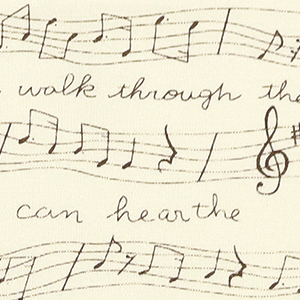 walk through the
can hearthe